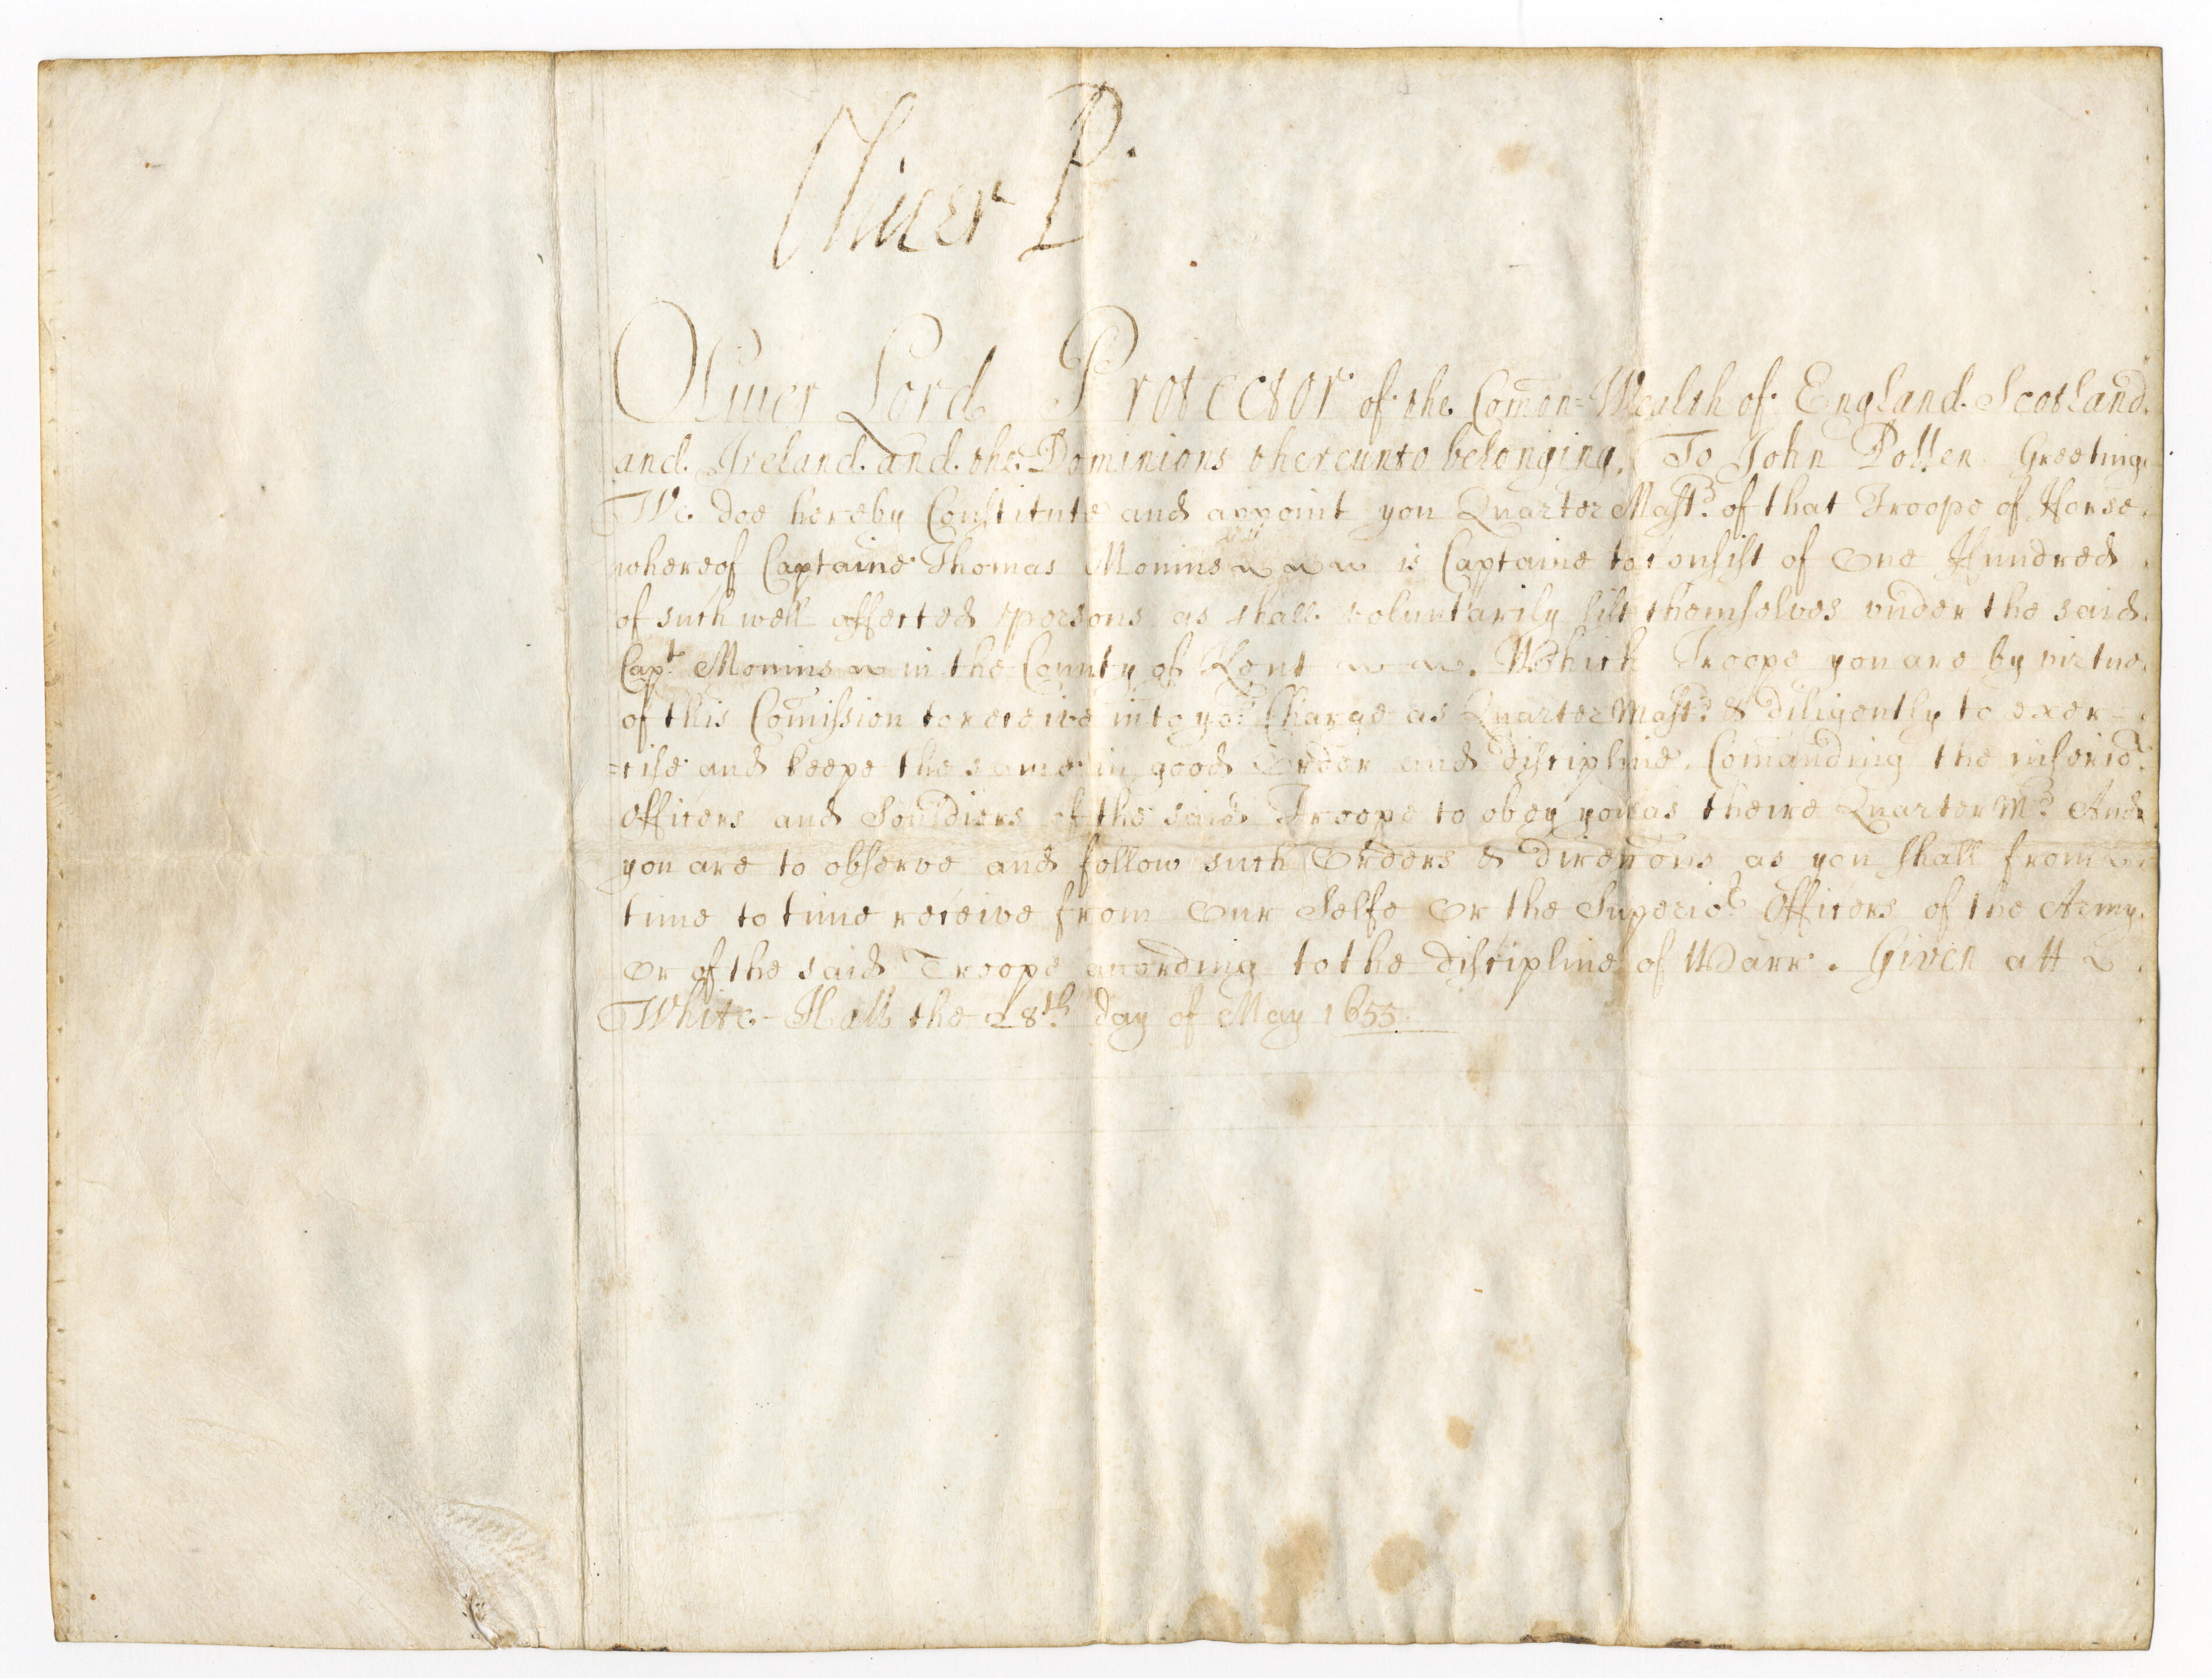 Oliver P.
Oliver Lord Protector of the Com̄on=Wealth of England Scotland
and Ireland and the Dominions thereunto belonging, To John Pollen Greeting
We doe hereby Constitute and appoint you Quarter Mastr. of that Troope of Horse
whereof Captaine Thomas Monins is Captaine to consist of One Hundred
of such well affected persons as shall voluntarily list themselves vnder the said
Capt. Monins in the County of Kent. Which Troope you are by virtue
of this Com̄ission to receive into yor. Charge as Quarter Mastr. & diligently to exer=
=cise and keepe the same in good Order and discipline. Com̄anding the inferior.
Officers and Souldiers of the said Troope to obey you as theire Quarter Mr. And
you are to observe and follow such Orders & direcc̄ons as you shall from
time to time receive from Our Selfe Or the Superior. Officers of the Army
Or of the said Troope according to the discipline of Warr. Given att
White-Hall the 28th. day of May 1655.